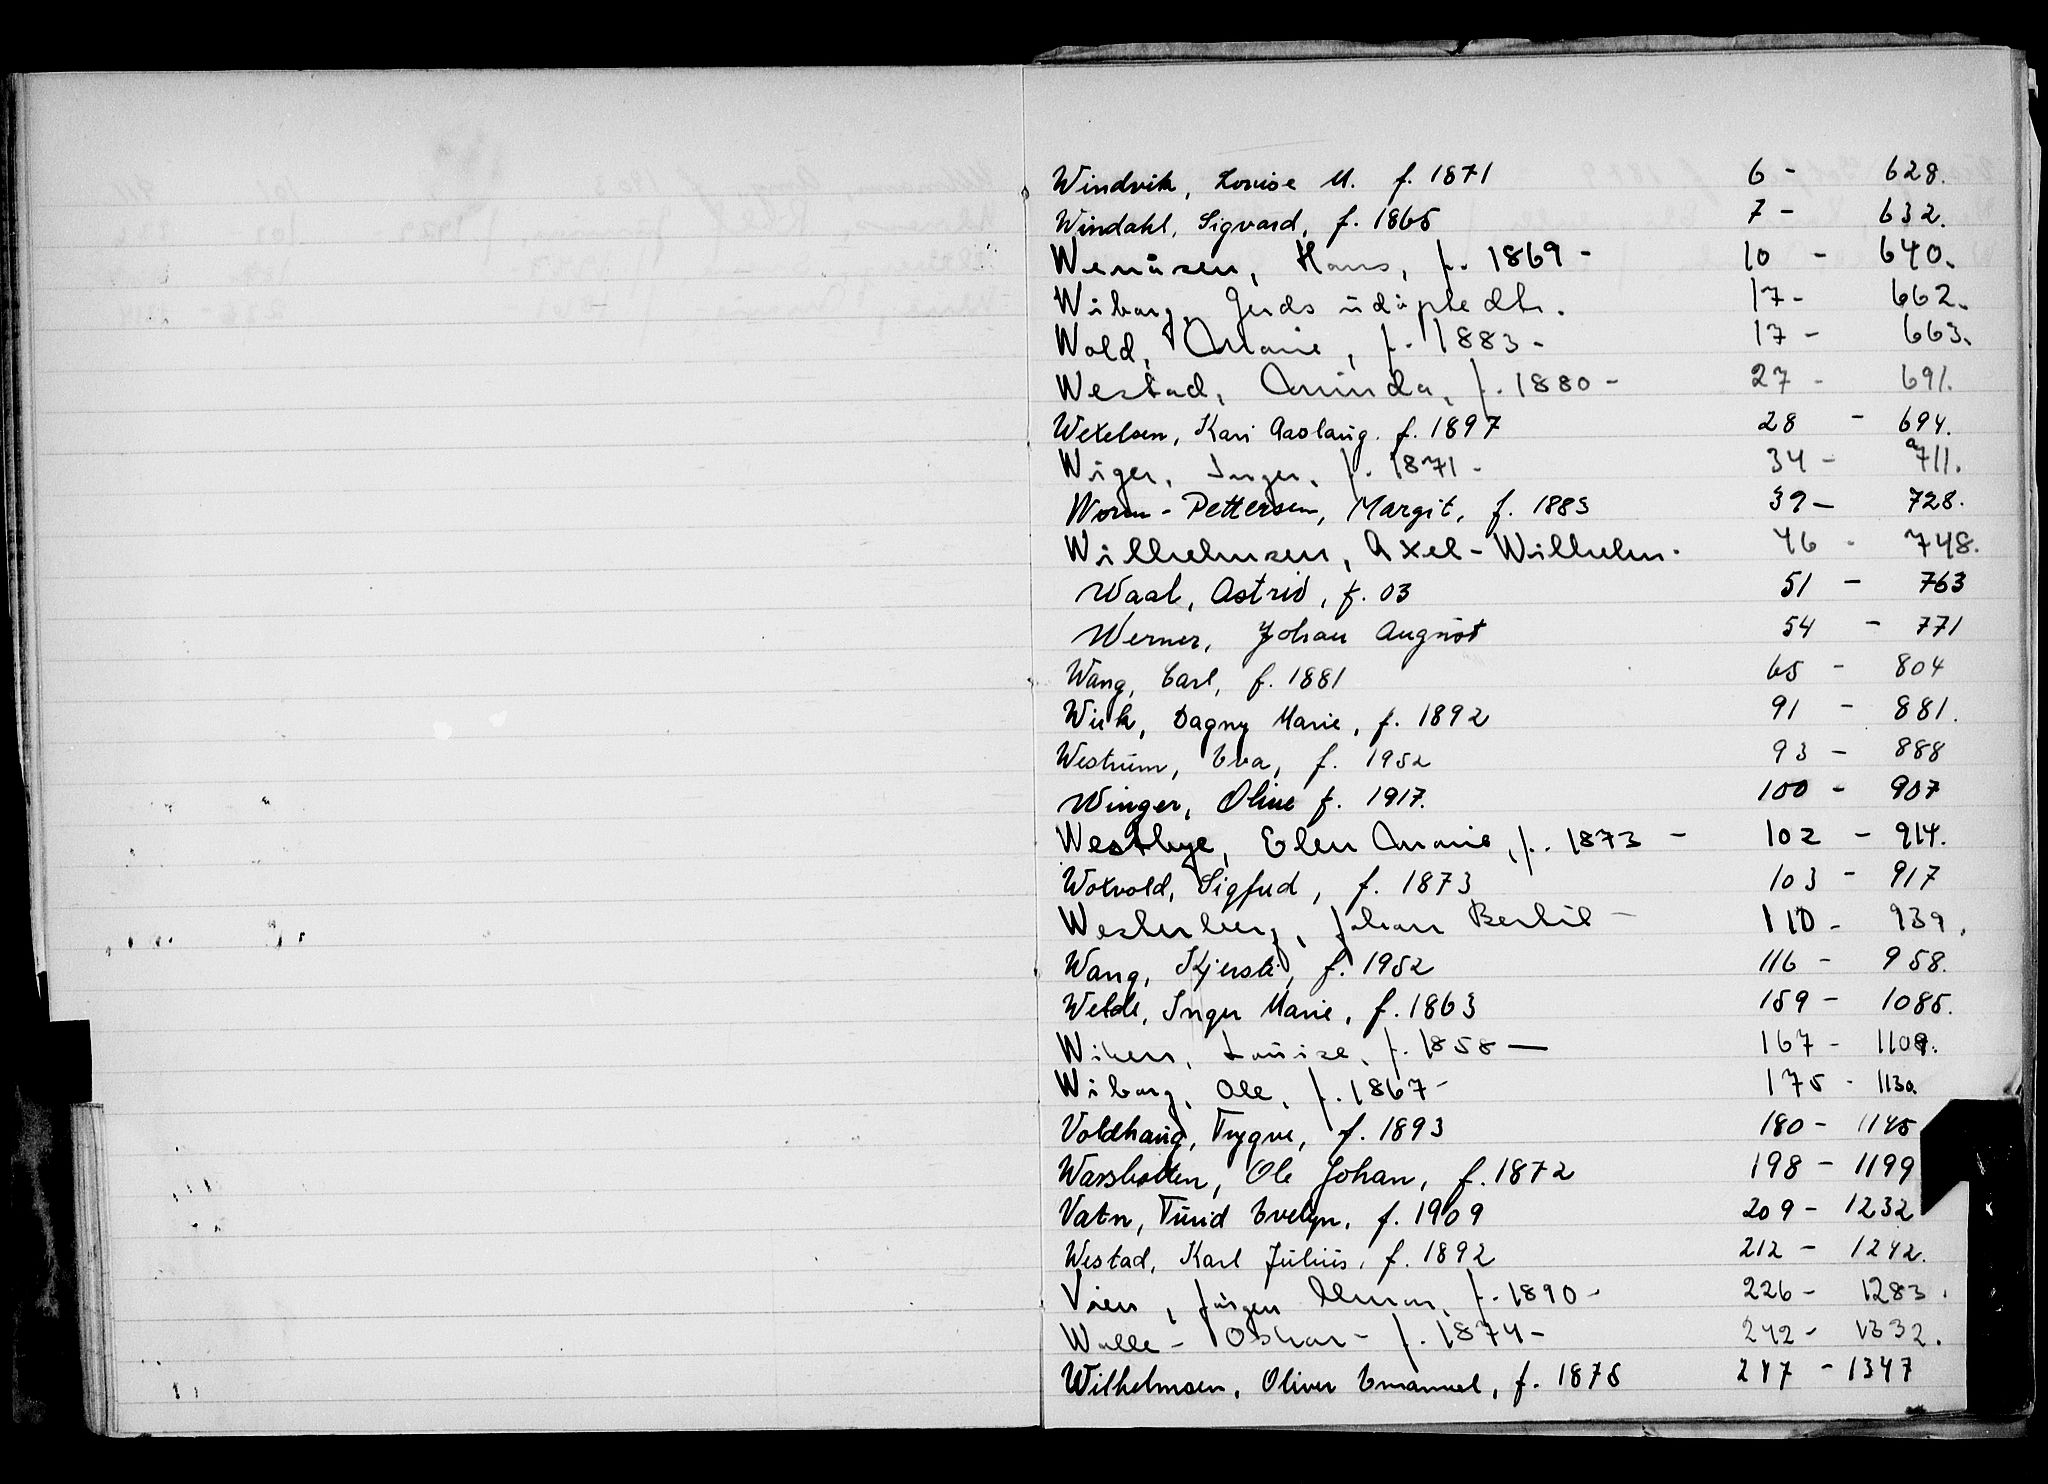 Windvik, Louise M. f. 1871 6 - 628.
Windahl, Sigvard, f. 1865 7 - 632.
Wenåsen, Hans, f. 1869 - 10 - 640.
Wiborg, Gerds udøpte dtr. 17 - 662.
Wold, Marie, f. 1883 - 17 - 663.
Westad, Aminda, f. 1880 - 27 - 691.
Wexelsen, Kari Aaslaug. f. 1897 28 - 694.
Wiger, Inger, f. 1871 - 34 - a711.
Worm-Pettersen, Margit, f. 1883 39 - 728.
Wilhelmsen, Axel-Wilhelm. 46 - 748.
Waal, Astrid, f. 03 51 - 763
Werner, Johan August 54 - 771
Wang, Carl, f. 1881 65 - 804
Wiik, Dagny Marie, f. 1892 91 - 881.
Westrum, Eva, f. 1952 93 - 888
Winger, Oline f. 1917. 100 - 907
Westbye, Elen Marie, f. 1873 - 102 - 914.
Wotvold, Sigfred, f. 1873 103 - 917
Westerberg, Johan Bertil - 110 - 939.
Wang, Kjersti, f. 1952 116 - 958.
Welde, Inger Marie, f. 1863 159 - 1085.
Wiken, Louise, f. 1858 — 167 - 1109.
Wiborg, Ole, f. 1867 - 175 - 1130.
Voldhaug, Trygve, f. 1893 180 - 1145
Warsbotten, Ole Johan, f. 1872 198 - 1199
Vatn, Turid Evelyn, f. 1909 209 - 1232
Westad, Karl Julius, f. 1892 212 - 1242.
Vien, Jørgen f. 1890 - 226 - 1283.
Walle - Oskar - f. 1874 - 242 - 1332.
Wilhelmsen, Oliver Emanuel, f. 1875 247 - 1347